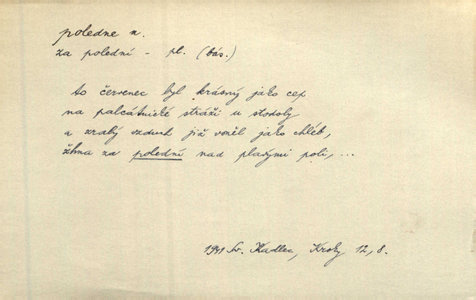 poledne n.
za polední – pl. (bás.)
to červenec byl krásný jako cep
na palcátnické stráži u stodoly
a zralý vzduch již voněl jako chléb,
žhna za polední nad plavými poli, ...
1941 Sv. Kadlec, Kroky 12, 8.